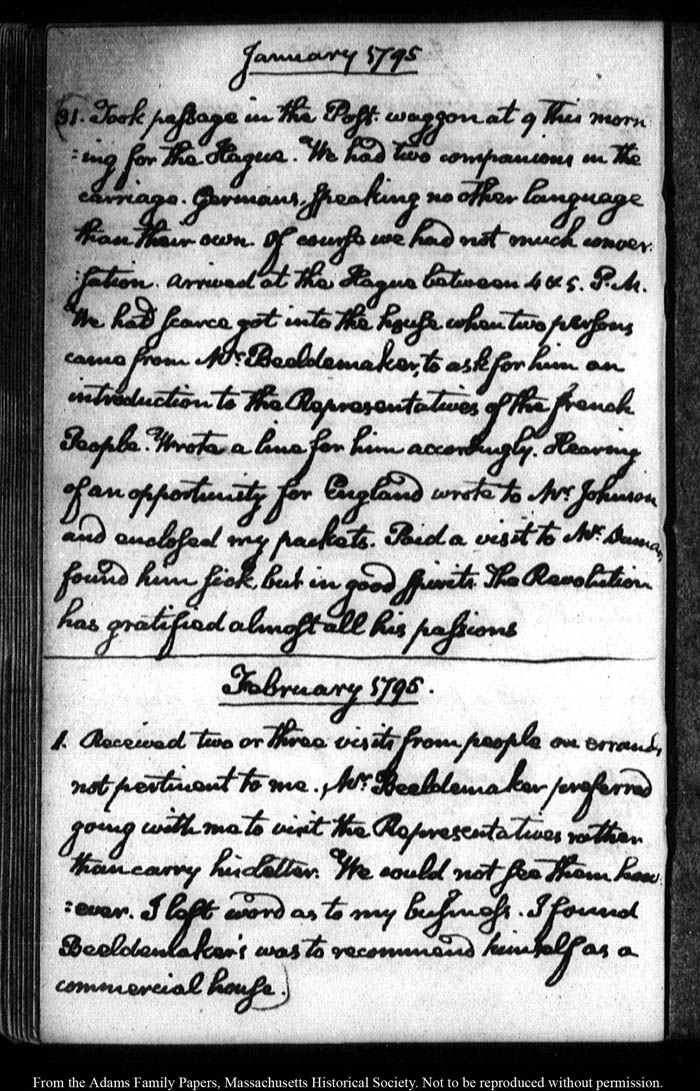 January 1795
31. Took paſsage in the Poſt. waggon at 9 this morn
:ing for the Hague. We had two companions in the
carriage. Germans, ſpeaking no other language
than their own. Of courſe we had not much conver:
:ſation. arrived at the Hague between 4 & 5. P.M.
We had ſcarce got into the houſe when two perſons
came from Mr. Beeldemaker, to ask for him an
introduction to the Repreſentatives of the french
People. Wrote a line for him accordingly. Hearing
of an opportunity for England wrote to Mr. Johnson
and encloſed my packets. Paid a visit to Mr. Dumas,
found him ſick, but in good ſpirits. The Revolution
has gratified almoſt all his paſsions
February 1795.
1. Received two or three visits from people on errands,
not pertinent to me. Mr. Beeldemaker preferred
going with me to visit the Repreſentatives rather
than carry his letter. We could not ſee them how:
:ever. I left word as to my buſineſs. I found
Beeldemaker's was to recommend himſelf as a
commercial houſe.)
From the Adams Family Papers, Massachusetts Historical Society. Not to be reproduced without permission.